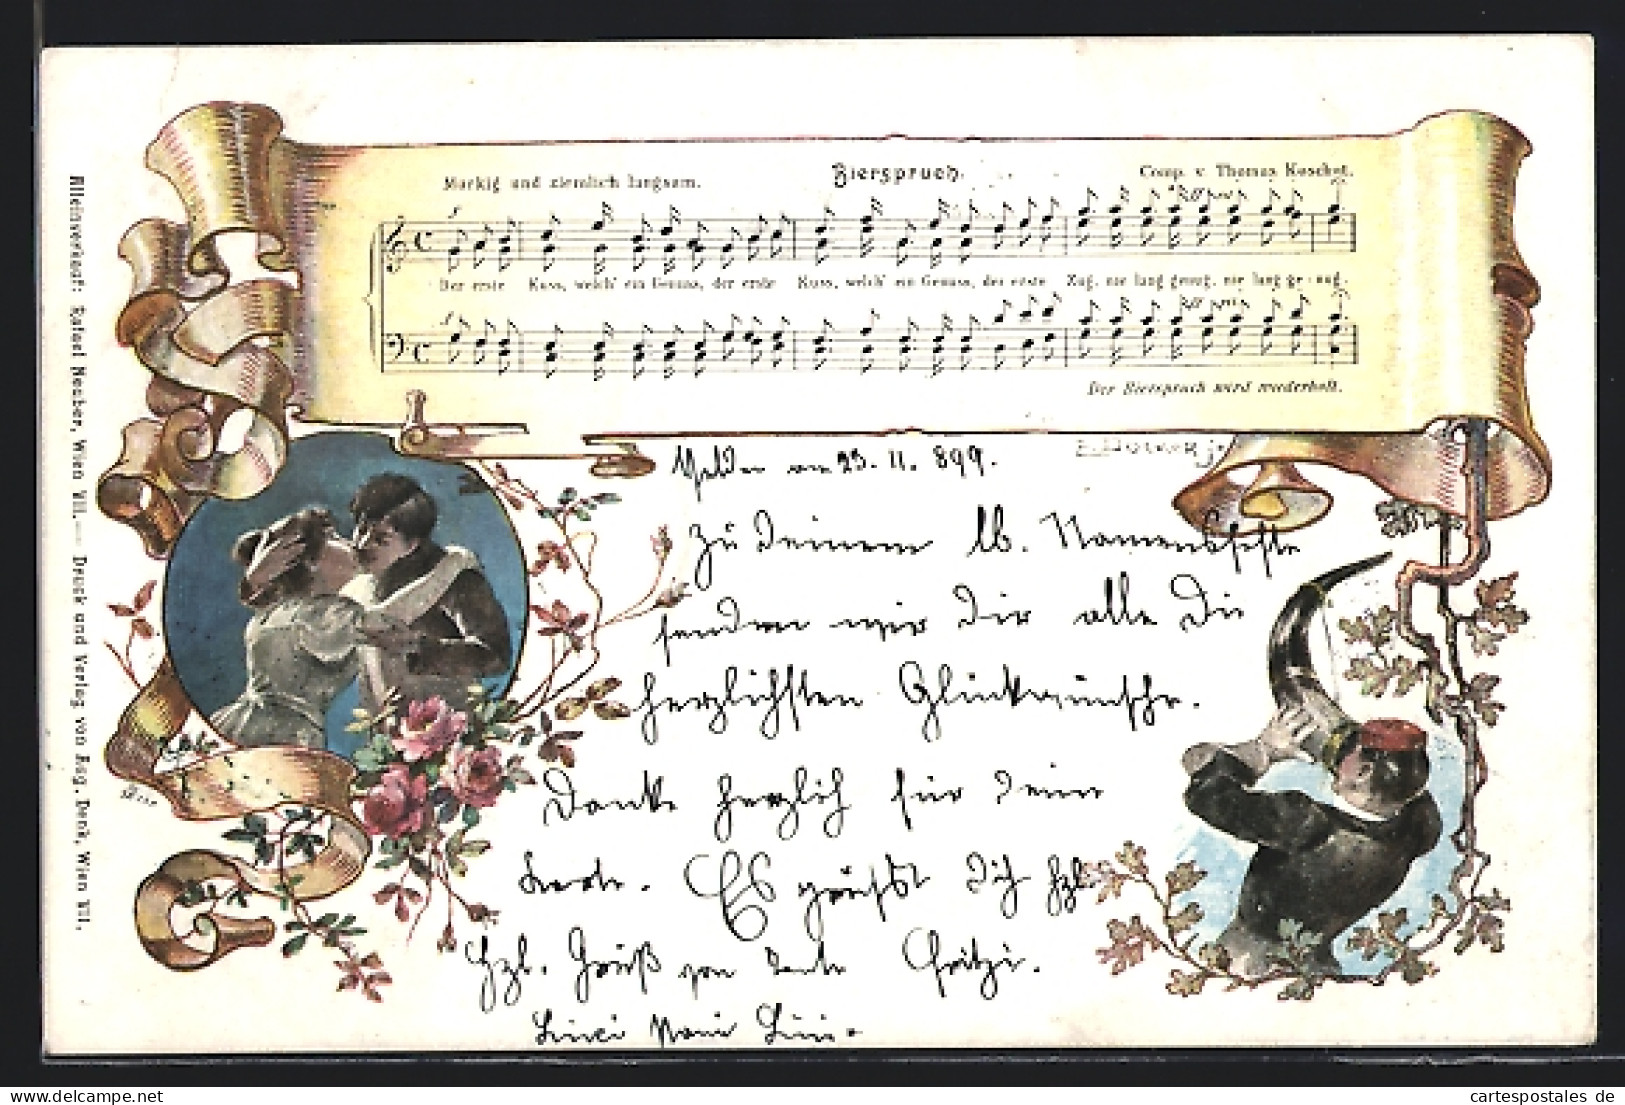 Bierspruch.
Markig und ziemlich langsam.
Comp. v. Thomas Koschat.
Der erste Kuss, welch' ein Genuss, der erste Kuss, welch' ein Genuss, der erste Zug, nur lang genug, nur lang ge-nug.
Der Bierspruch wird wiederholt.
Alleinverkauf: Rafael Neuber, Wien VII. — Druck und Verlag von Aug. Denk, Wien VII.
am 25. 11. 899.
Zu Deinem lb. Namensfeste
senden wir Dir alle die
herzlichsten Glückwünsche.
Danke herzlich für Deine
Karte. Es grüßt Dich hzl.
Hzl. Gruß von Tante Fritzi.
cartespostales de